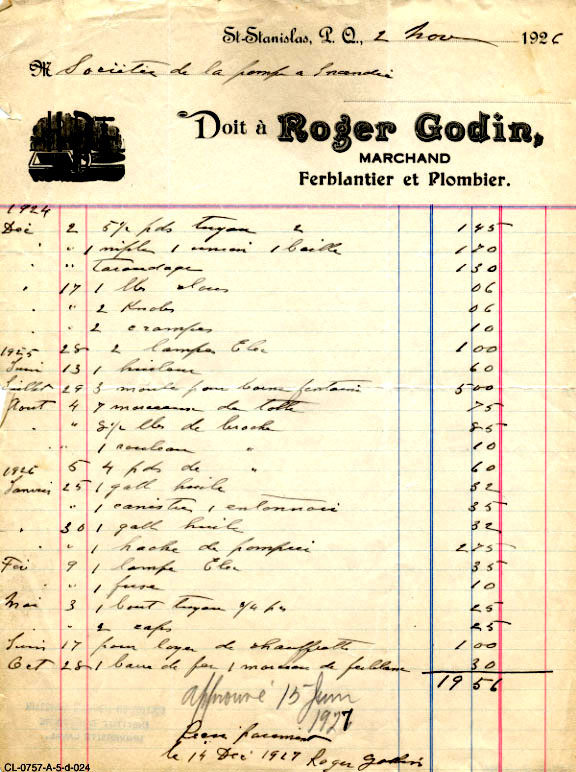 St-Stanislas, P. Q., 2 Nov 1926
M Sociétée de la pompe a Incendie
Doit à Roger Godin,
MARCHAND
Ferblantier et Plombier.
1924
Dec 2 5½ pds tuyau 2 1 45
" " 1 niple 1 union 1 1 70
" Taraudage 1 30
" 17 1 lbs clous 06
" 2 Knobs 06
" 2 crampes 10
1925 28 2 lampes Elec 1 00
Juin 13 1 60
Juillet 29 3 moule pour borne fontaine 5 00
Aout 4 7 morceaux de tolle 75
" 8½ lbs de broche 85
" 1 rouleau " 10
1926 5 4 pds de " 60
Janvier 25 1 gall huile 32
" 1 canistre 1 entonnoir 35
" 30 1 gall huile 32
" " 1 hache de pompier 2 75
Fev 9 1 lampe Elec 35
" 1 fuse 10
Mai 3 1 bout tuyau 3/4 25
" 2 caps 25
Juin 17 pour loyer de chaufrette 1 00
Oct 28 1 barre de fer 1 morceau de ferblanc 30
19 56
Approuvé 15 Juin
1927
Recu paiement
le 14 Dec 1927 Roger Godin
CL-0757-A-5-d-024